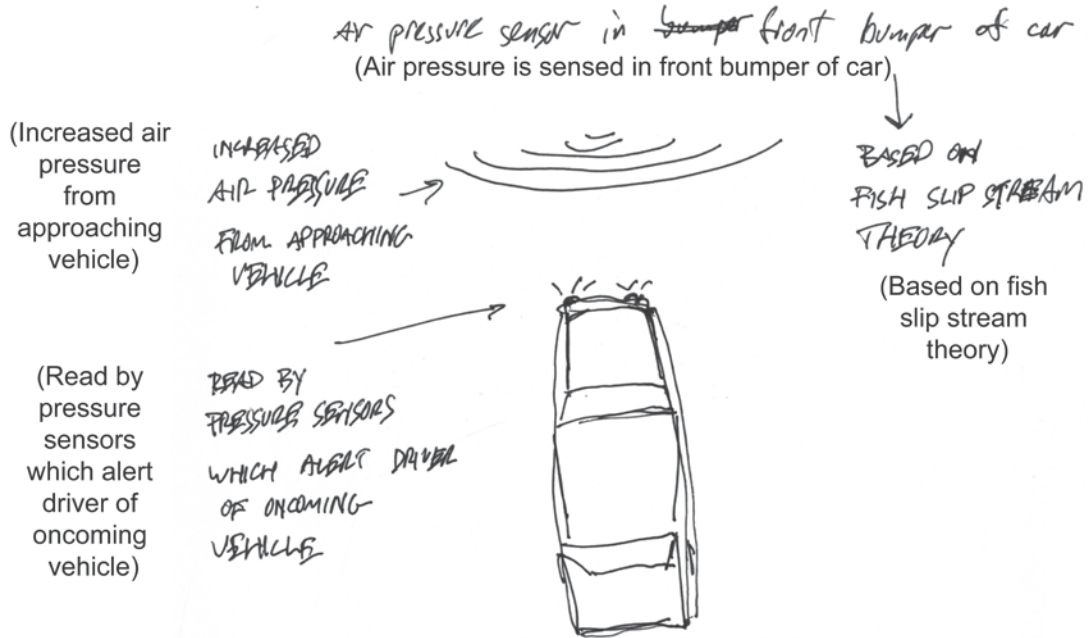 Air pressure sensor in bumper front bumper of car
(Air pressure is sensed in front bumper of car)
(Increased air
pressure
from
approaching
vehicle)
INCREASED
AIR PRESSURE
FROM APPROACHING
VEHICLE
BASED ON
FISH SLIP STREAM
THEORY
(Based on fish
slip stream
theory)
(Read by
pressure
sensors
which alert
driver of
oncoming
vehicle)
READ BY
PRESSURE SENSORS
WHICH ALERT DRIVER
OF ONCOMING
VEHICLE